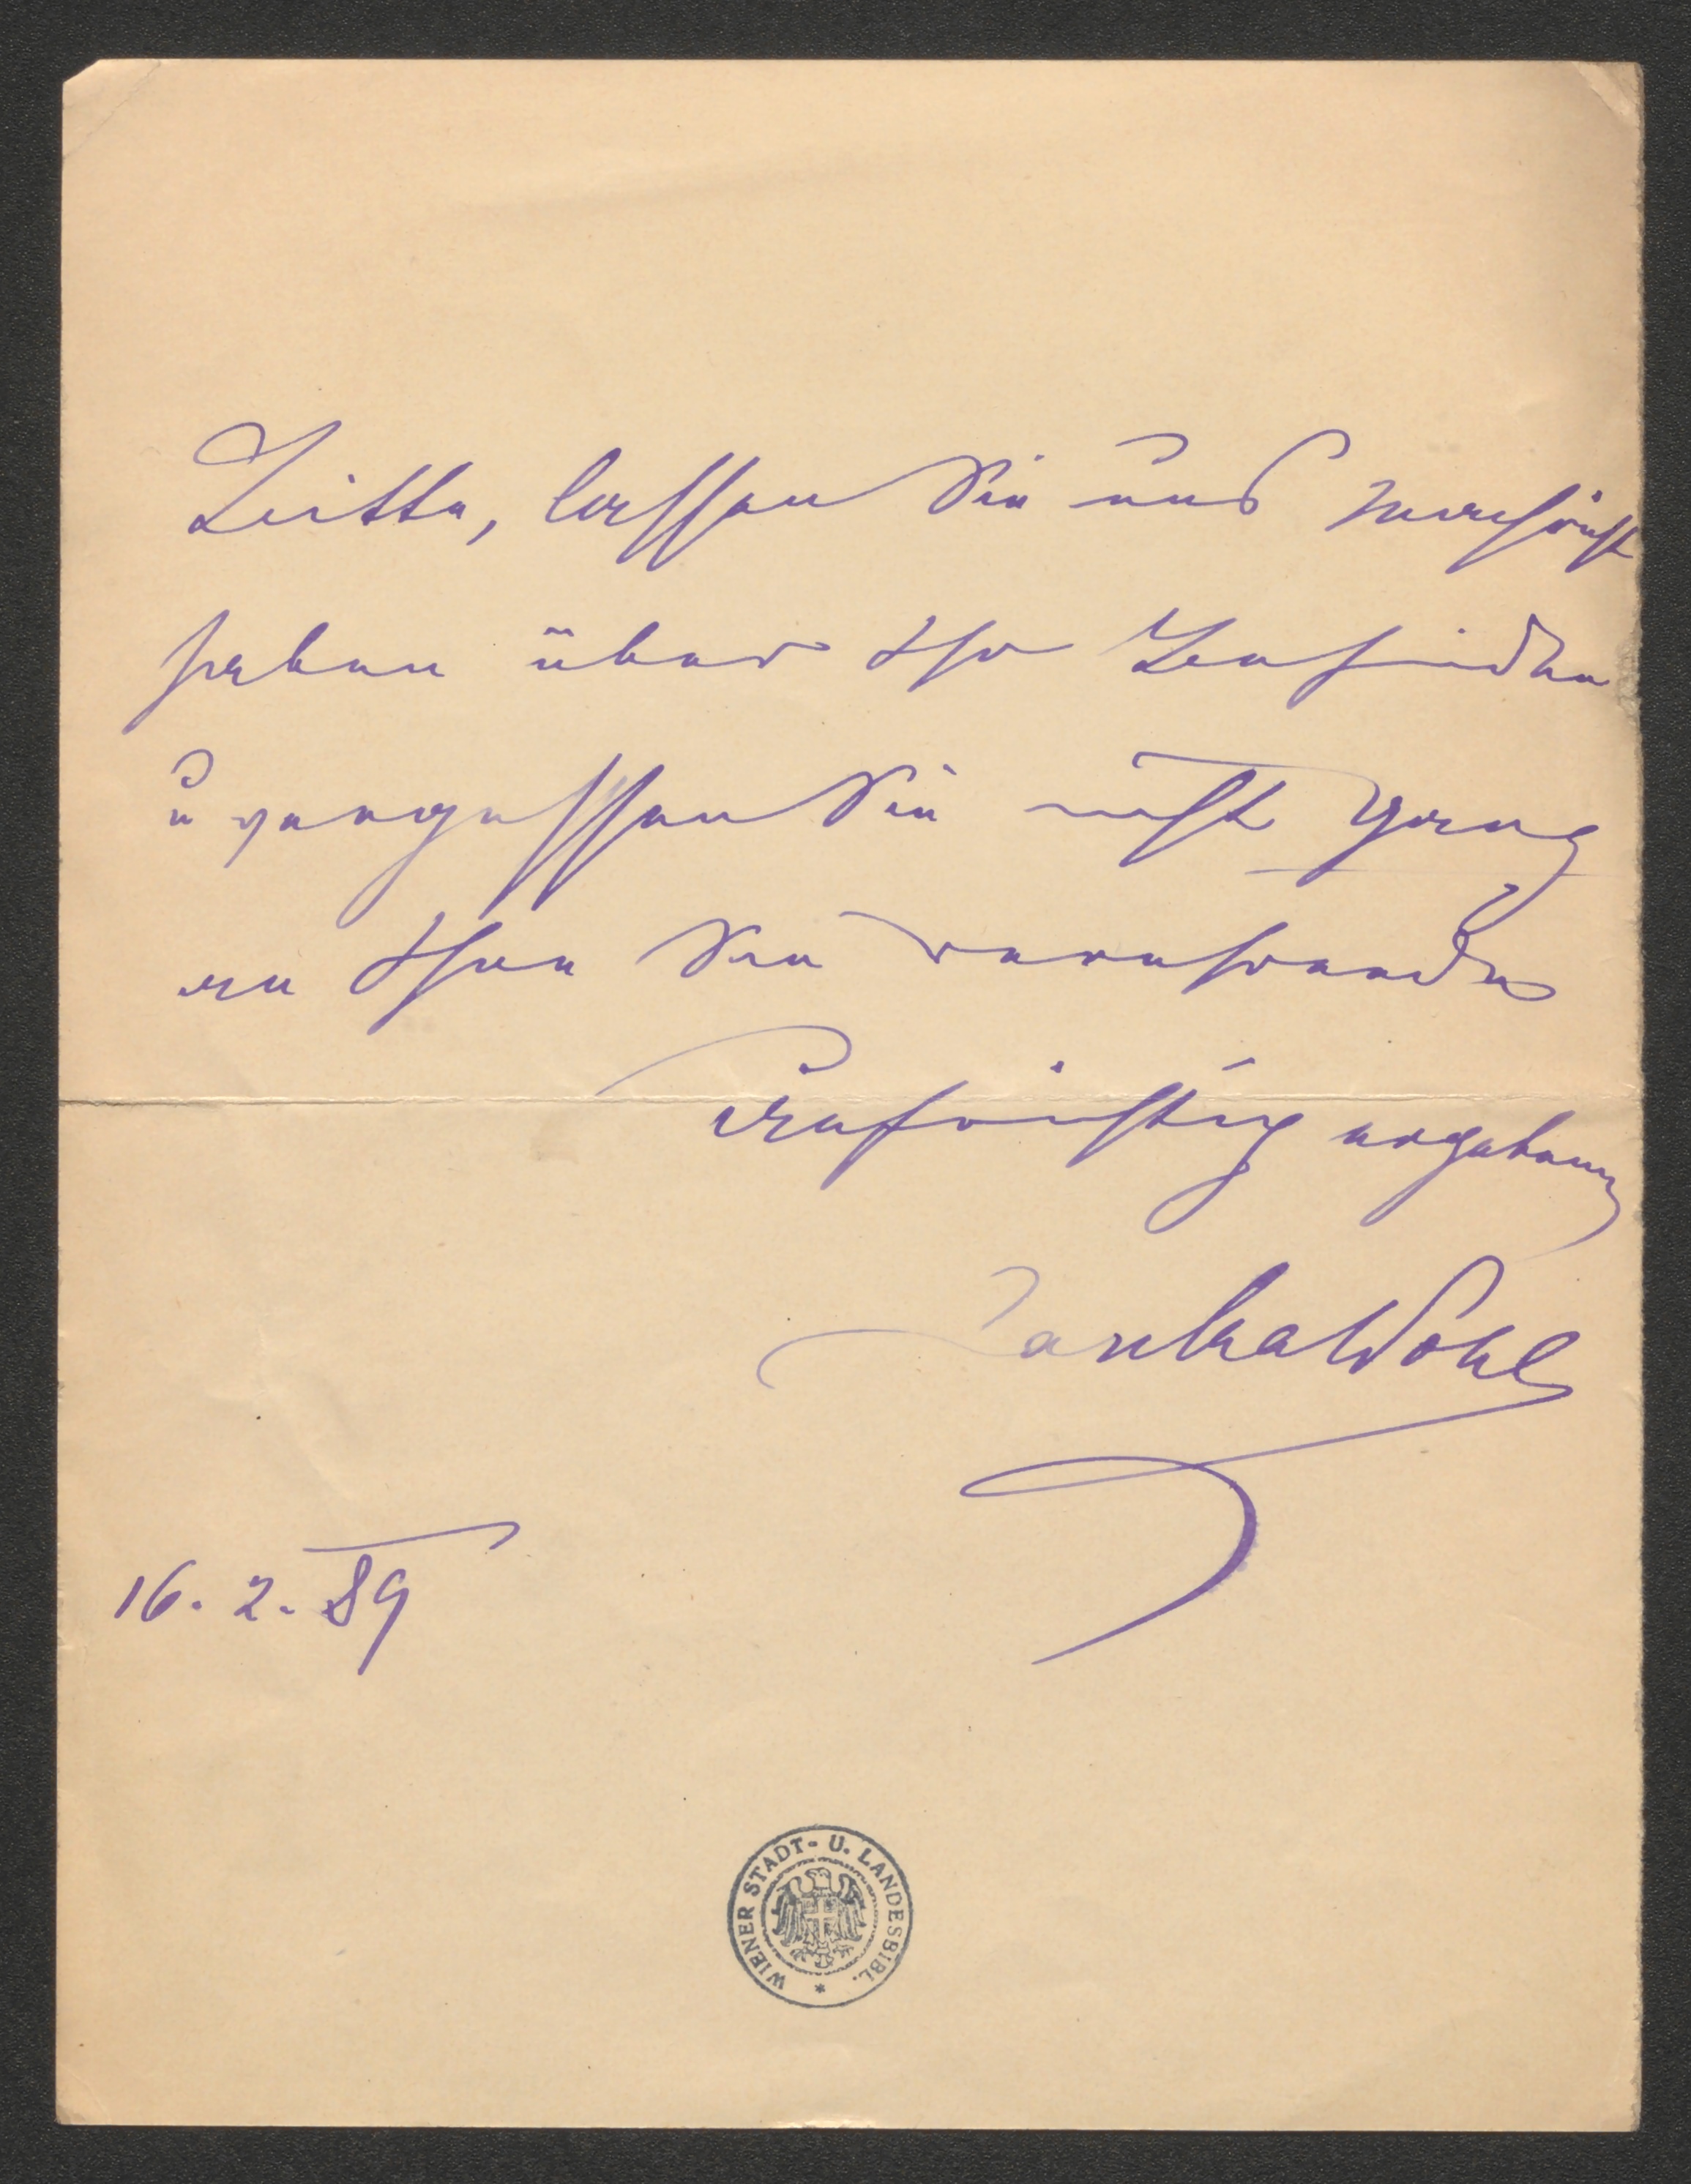 Bitte, lassen Sie uns Nachricht
haben über Ihr Befinden
u vergessen Sie nicht ganz
an Ihre Sie verehrende
aufrichtig ergebene
Janka Wohl
16. 2. 89
WIENER STADT- U. LANDESBIBL.